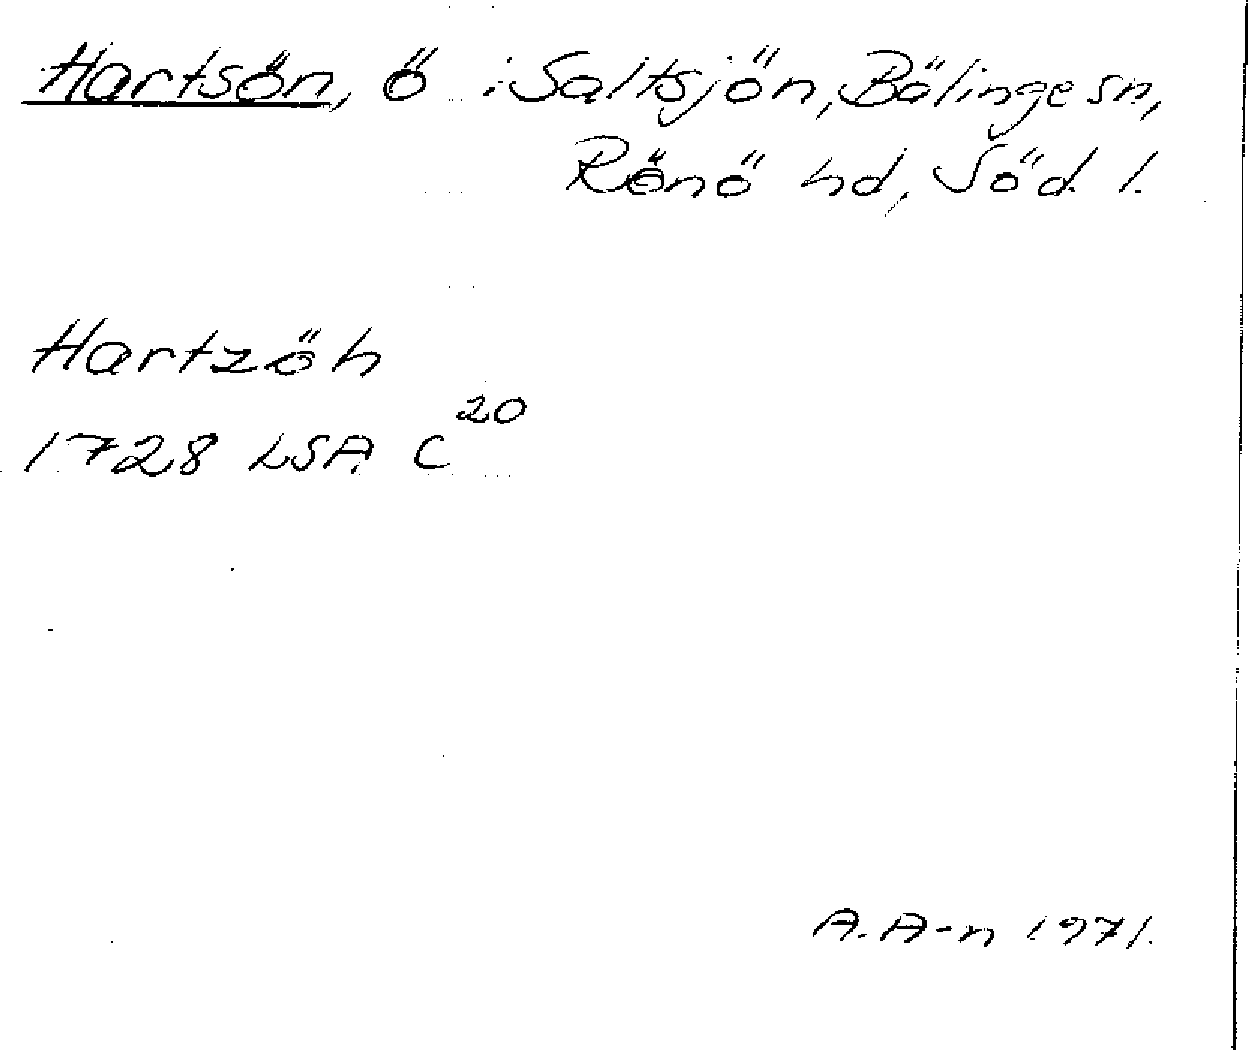 Hartsön, ö i Saltsjön, Bälinge sn,
Rönö hd, Söd. l.
Hartzöh
1728 LSA C²⁰
A. A-n 1971.